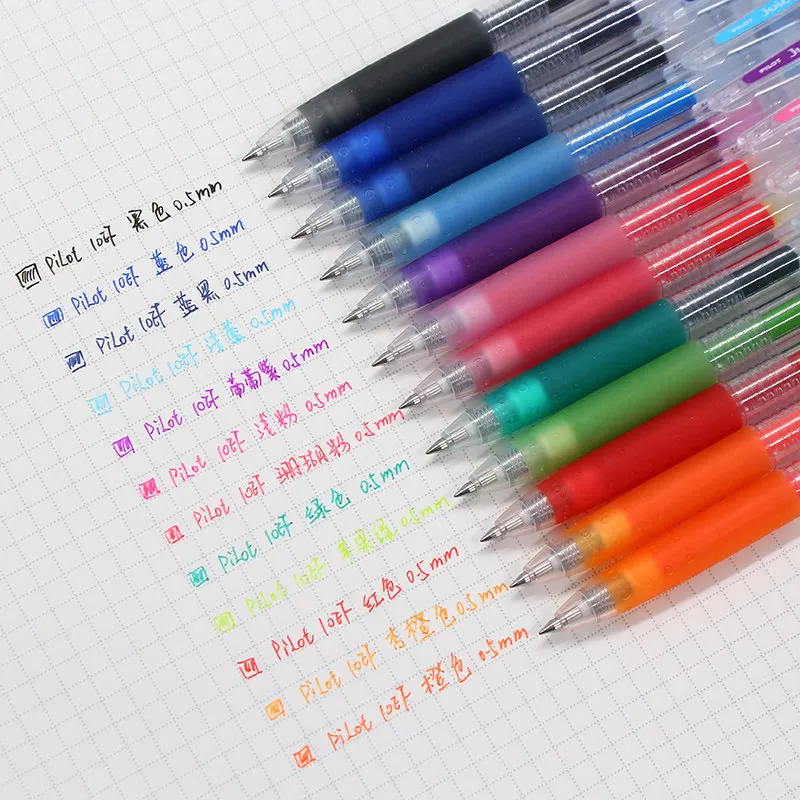 Pilot 10EF 黑色 0.5mm
Pilot 10EF 蓝色 0.5mm
Pilot 10EF 蓝黑 0.5mm
Pilot 10EF 浅蓝 0.5mm
Pilot 10EF 葡萄紫 0.5mm
Pilot 10EF 浅粉 0.5mm
Pilot 10EF 珊瑚粉 0.5mm
Pilot 10EF 绿色 0.5mm
Pilot 10EF 苹果绿 0.5mm
Pilot 10EF 红色 0.5mm
Pilot 10EF 杏橙色 0.5mm
Pilot 10EF 橙色 0.5mm
PILOT
PILOT